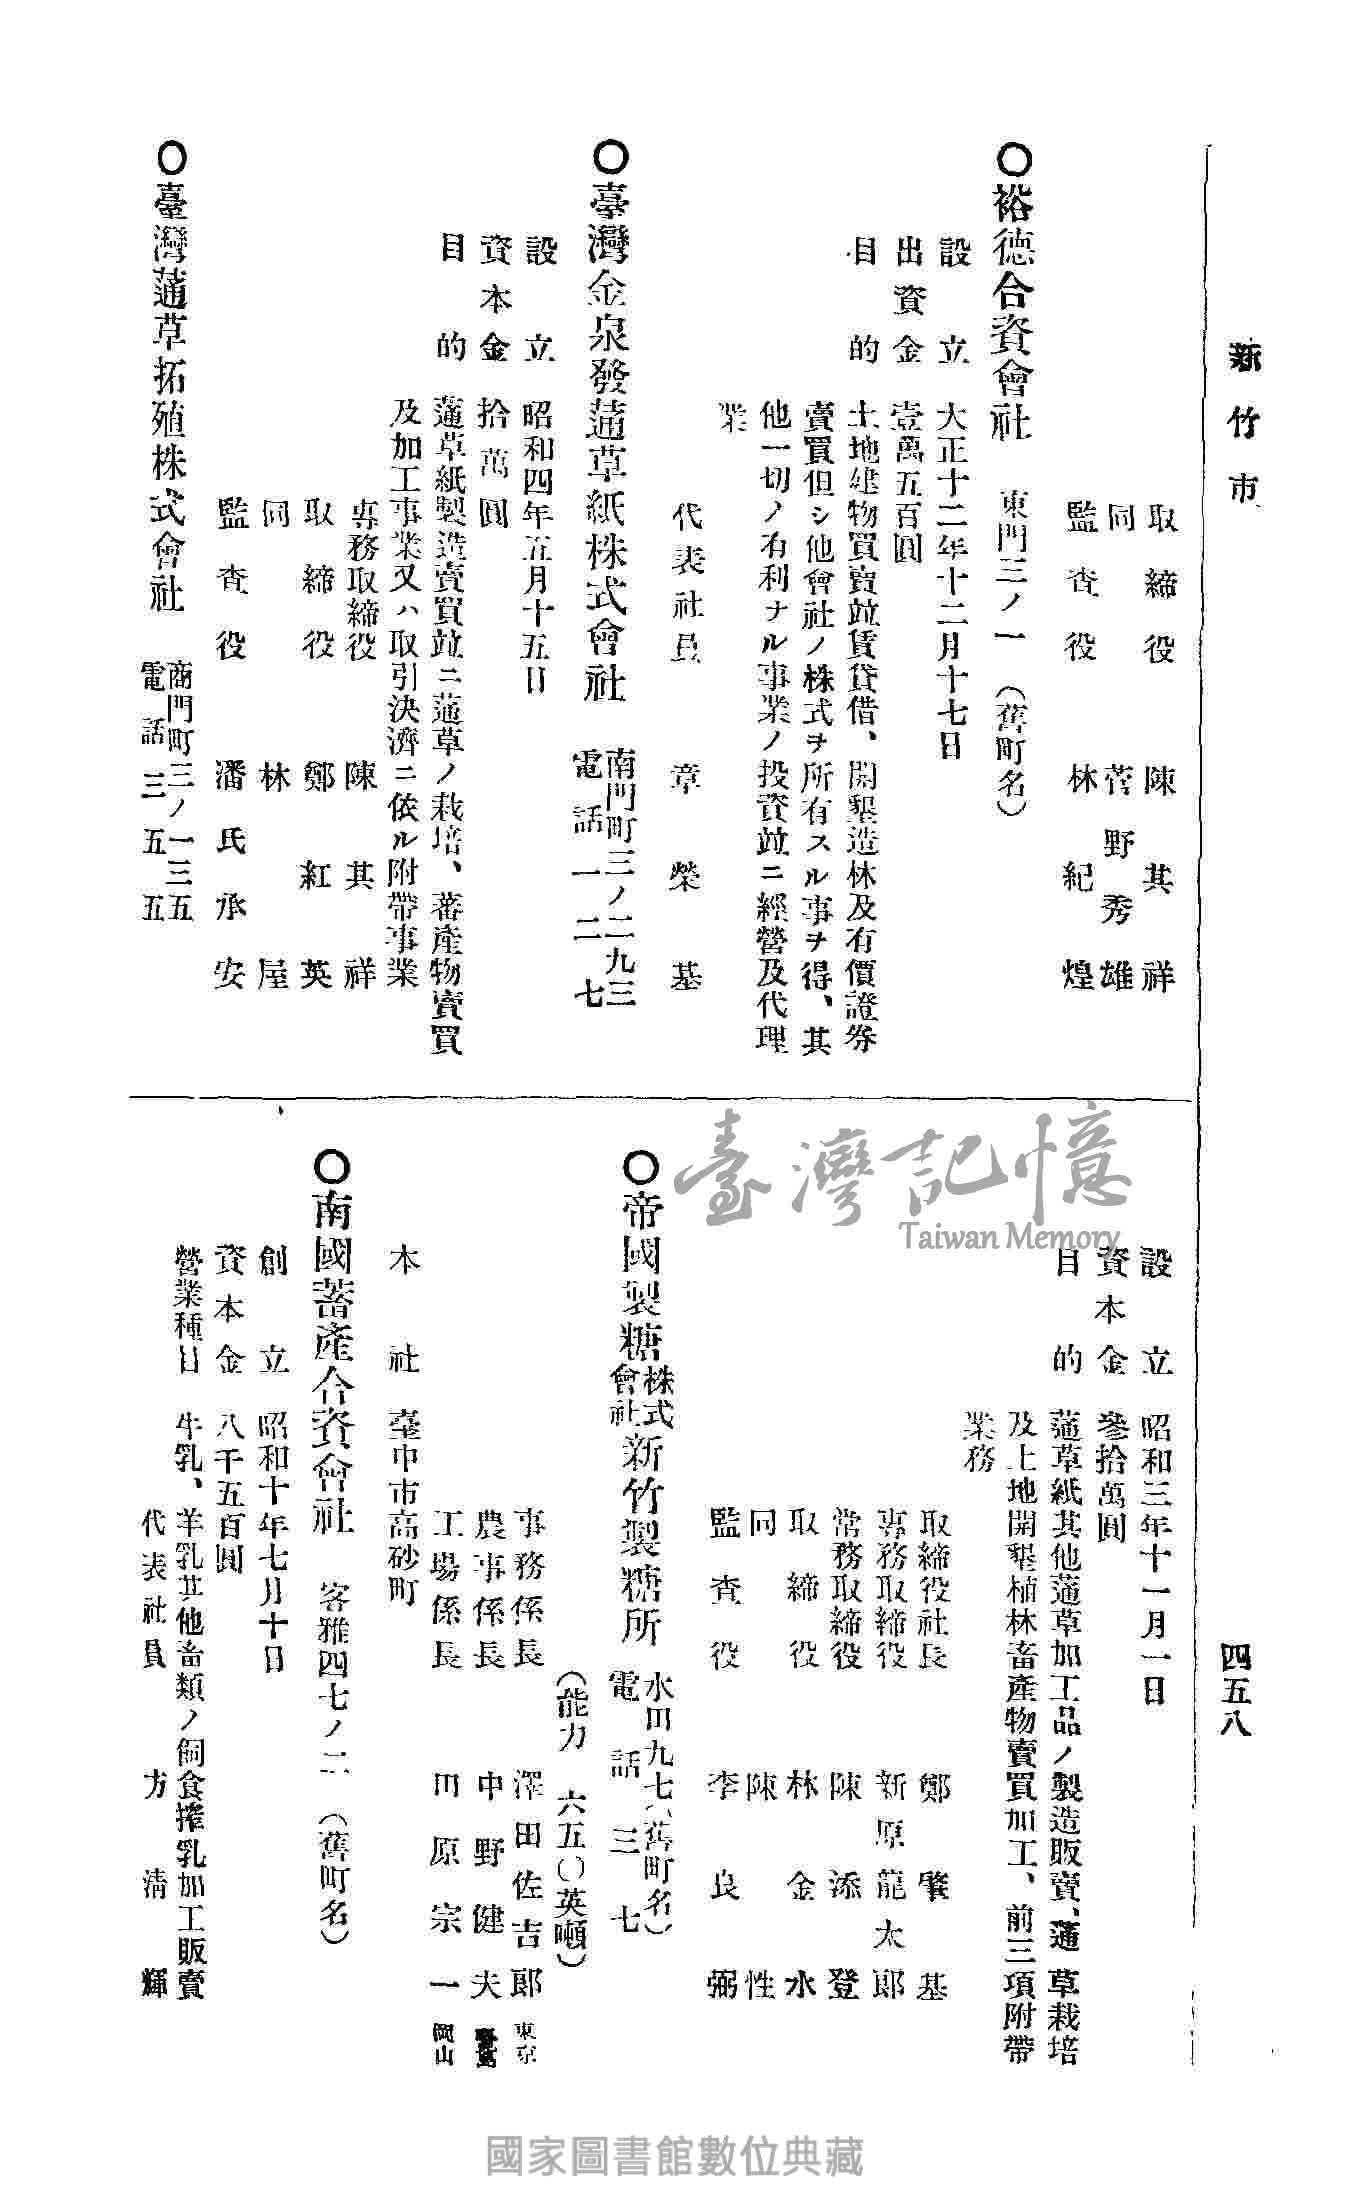 新竹市
四五八
取締役 陳其祥
同 菅野秀雄
監査役 林紀煌
〇裕德合資會社 東門三ノ一 (舊町名)
設立 大正十二年十二月十七日
出資金 壹萬五百圓
目的 土地建物買賣竝賃貸借、開墾造林及有價證券
賣買但シ他會社ノ株式ヲ所有スル事ヲ得、其
他一切ノ有利ナル事業ノ投資竝ニ經營及代理
業
代表社員 章榮基
〇臺灣金泉發蓪草紙株式會社 南門町三ノ二九三
電話一二七
設立 昭和四年五月十五日
資本金 拾萬圓
目的 蓪草紙製造賣買竝ニ蓪草ノ栽培、蕃產物賣買
及加工事業又ハ取引決濟ニ依ル附帶事業
專務取締役 陳其祥
取締役 鄭紅英
同 林屋
監査役 潘氏承安
〇臺灣蓪草拓殖株式會社 南門町三ノ一三五
電話三五五
設立 昭和三年十一月一日
資本金 參拾萬圓
目的 蓪草紙其他蓪草加工品ノ製造販賣、蓪草栽培
及土地開墾植林畜產物賣買加工、前三項附帶
業務
取締役社長 鄭肇基
專務取締役 新原龍太郎
常務取締役 陳添登
取締役 林金水
同 陳性
監査役 李良弼
〇帝國製糖株式會社新竹製糖所 水田九七(舊町名)
電話三七
(能力 六五〇英噸)
事務係長 澤田佐吉郎 東京
農事係長 中野健夫
工場係長 田原宗一 岡山
本社 臺中市高砂町
〇南國蓄產合資會社 客雅四七ノ二 (舊町名)
創立 昭和十年七月十日
資本金 八千五百圓
營業種目 牛乳、羊乳其他畜類ノ飼食搾乳加工販賣
代表社員 方淸輝
臺灣記憶
Taiwan Memory
國家圖書館數位典藏